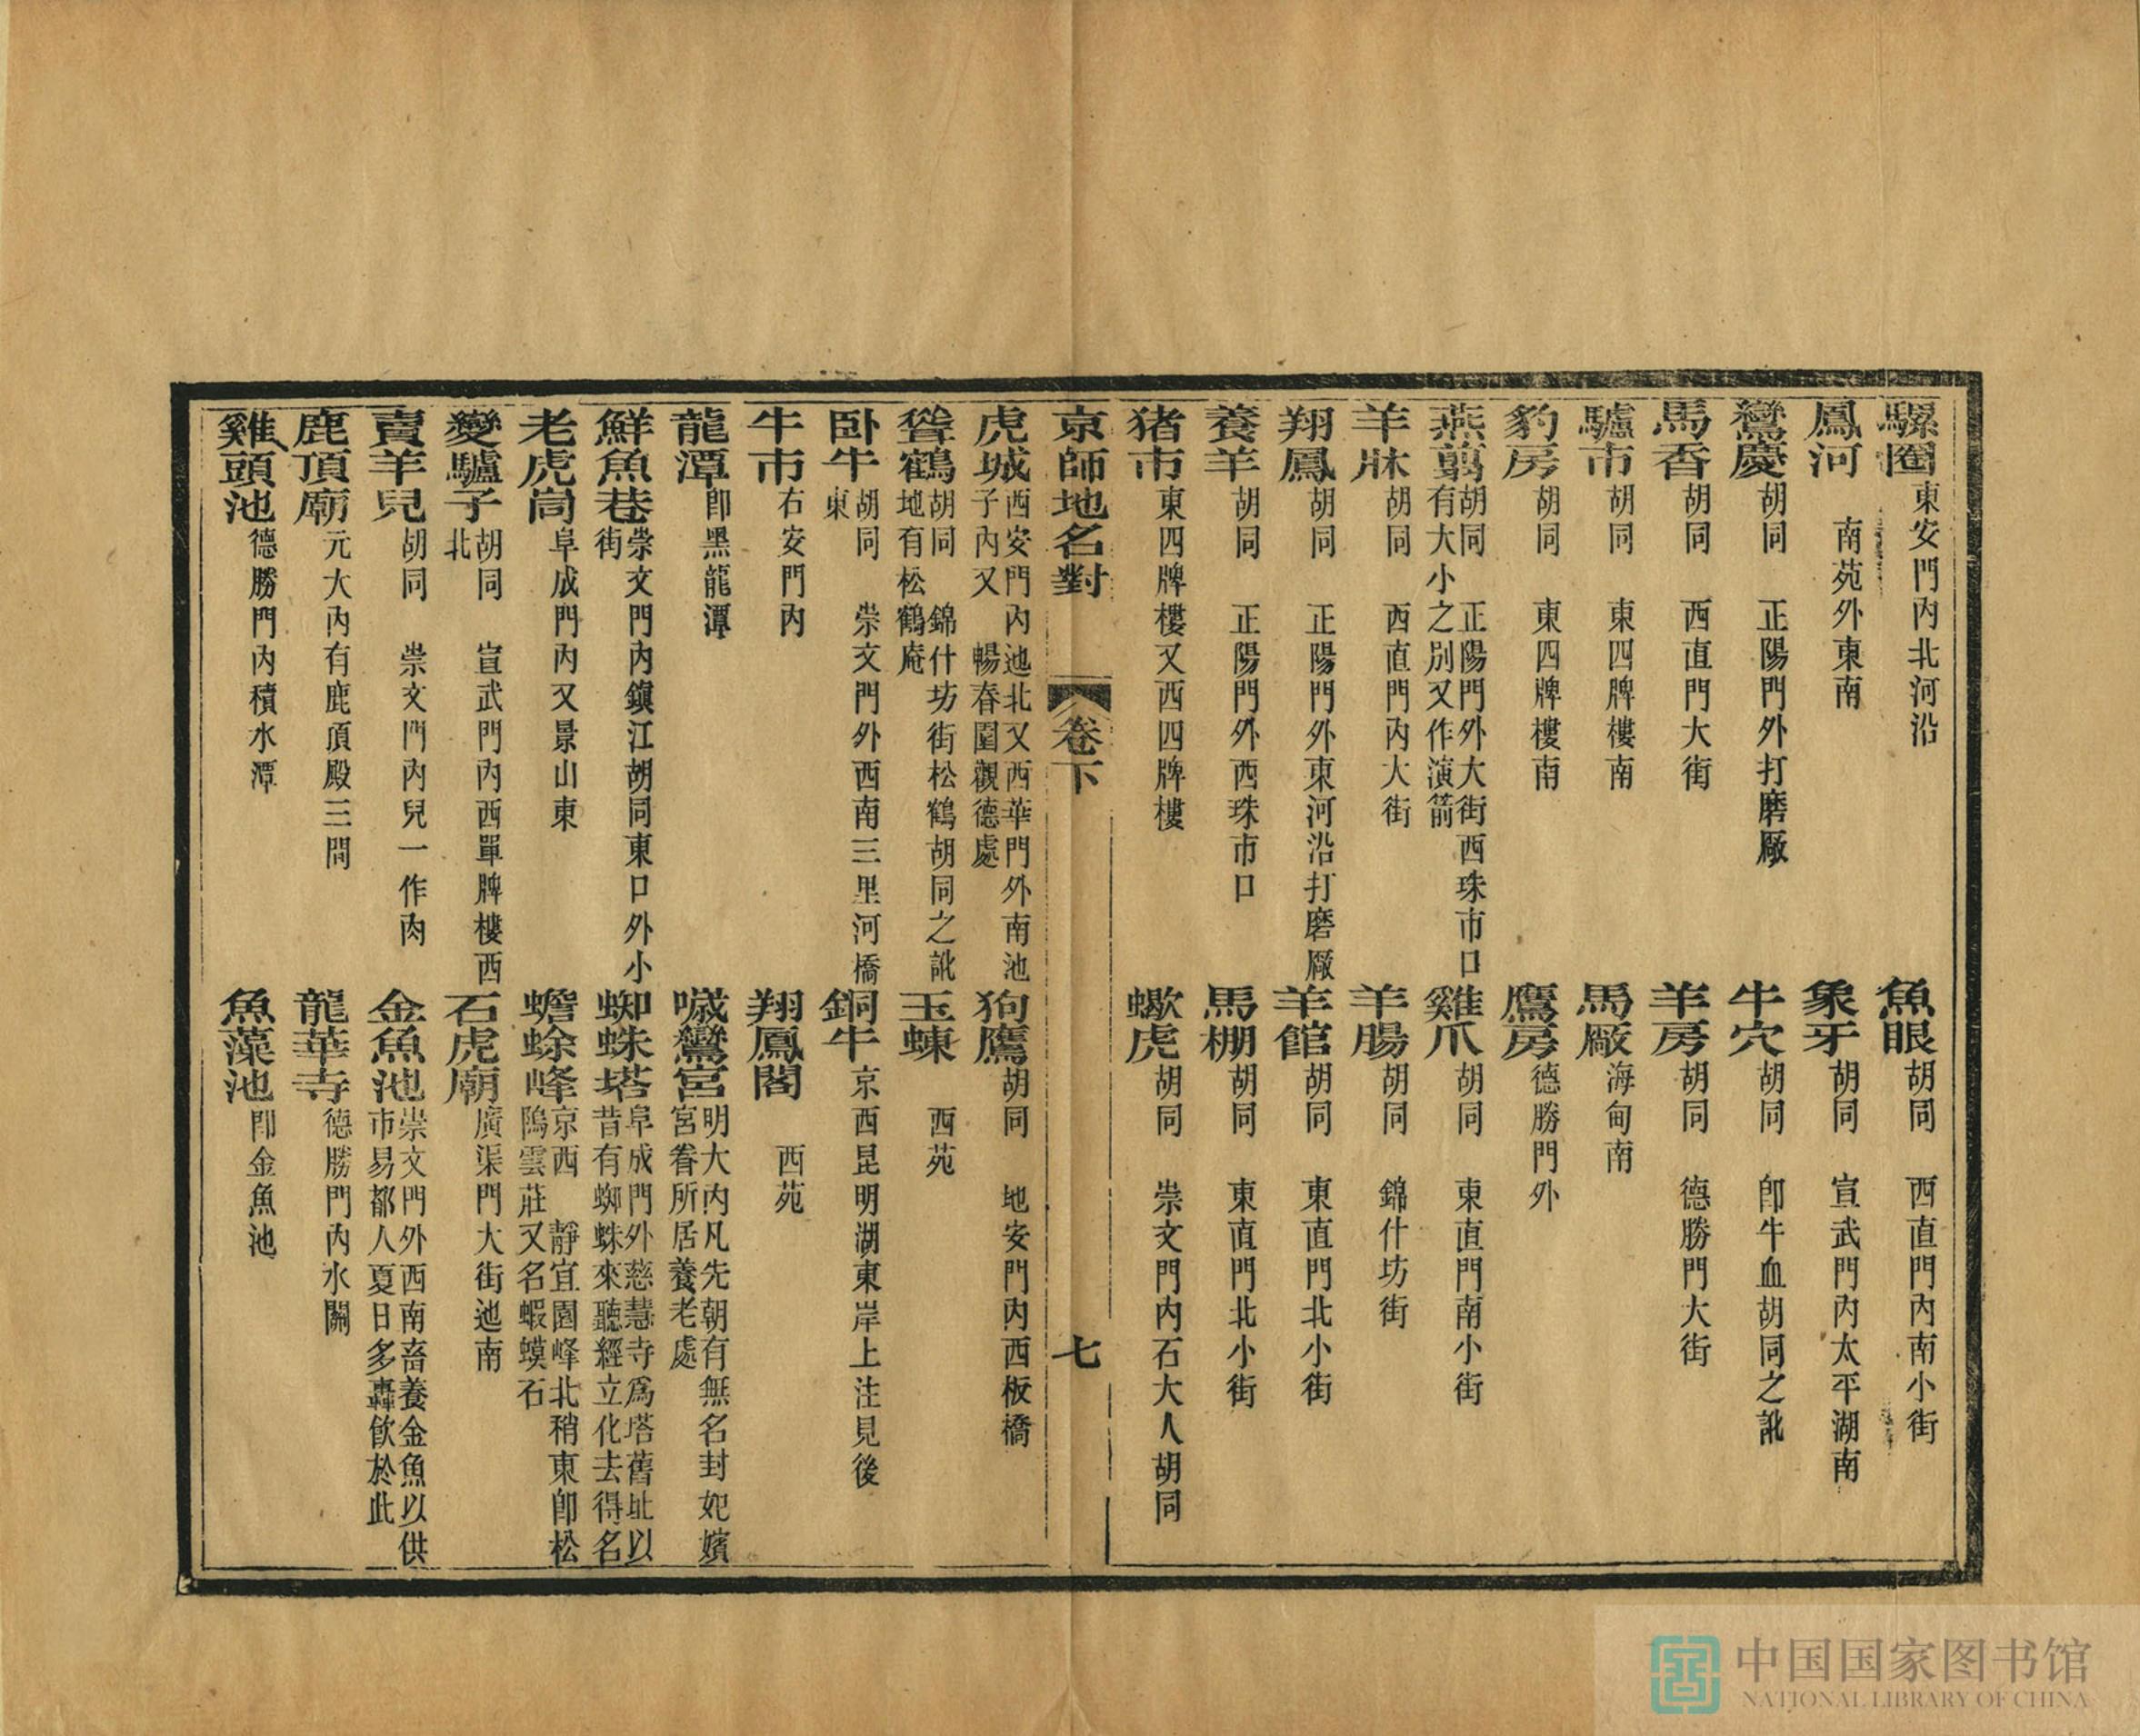 騾圈東安門內北河沿 魚眼胡同 西直門內南小街
鳳河 南苑外東南 象牙胡同 宣武門內太平湖南
鸞慶胡同 正陽門外打磨厰 牛穴胡同 卽牛血胡同之訛
馬香胡同 西直門大街 羊房胡同 德勝門大街
驢市胡同 東四牌樓南 馬厰海甸南
豹房胡同 東四牌樓南 鷹房德勝門外
燕翦胡同 正陽門外大街西珠市口有大小之別又作演箭 雞爪胡同 東直門南小街
羊牀胡同 西直門內大街 羊腸胡同 錦什坊街
翔鳳胡同 正陽門外東河沿打磨厰 羊館胡同 東直門北小街
養羊胡同 正陽門外西珠市口 馬棚胡同 東直門北小街
猪市東四牌樓又西四牌樓 蠍虎胡同 崇文門內石大人胡同
京師地名對 卷下 七
虎城西安門內迤北又西華門外南池子內又 暢春園觀德處 狗鷹胡同 地安門內西板橋
聳鶴胡同 錦什坊街松鶴胡同之訛地有松鶴庵 玉蝀 西苑
卧牛胡同 崇文門外西南三里河橋東 銅牛京西昆明湖東岸上注見後
牛市右安門內 翔鳳閣 西苑
龍潭卽黑龍潭 噦鸞宮明大內凡先朝有無名封妃嬪宮眷所居養老處
鮮魚巷崇文門內鎭江胡同東口外小街 蜘蛛塔阜成門外慈慧寺爲塔舊址以昔有蜘蛛來聽經立化去得名
老虎峝阜成門內又景山東 蟾蜍峰京西 靜宜園峰北稍東卽松隖雲莊又名蝦蟆石
變驢子胡同 宣武門內西單牌樓西北 石虎廟廣渠門大街迤南
賣羊兒胡同 崇文門內兒一作肉 金魚池崇文門外西南畜養金魚以供市易都人夏日多轟飮於此
鹿頂廟元大內有鹿頂殿三間 龍華寺德勝門內水關
雞頭池德勝門內積水潭 魚藻池卽金魚池
中国国家图书馆
NATIONAL LIBRARY OF CHINA